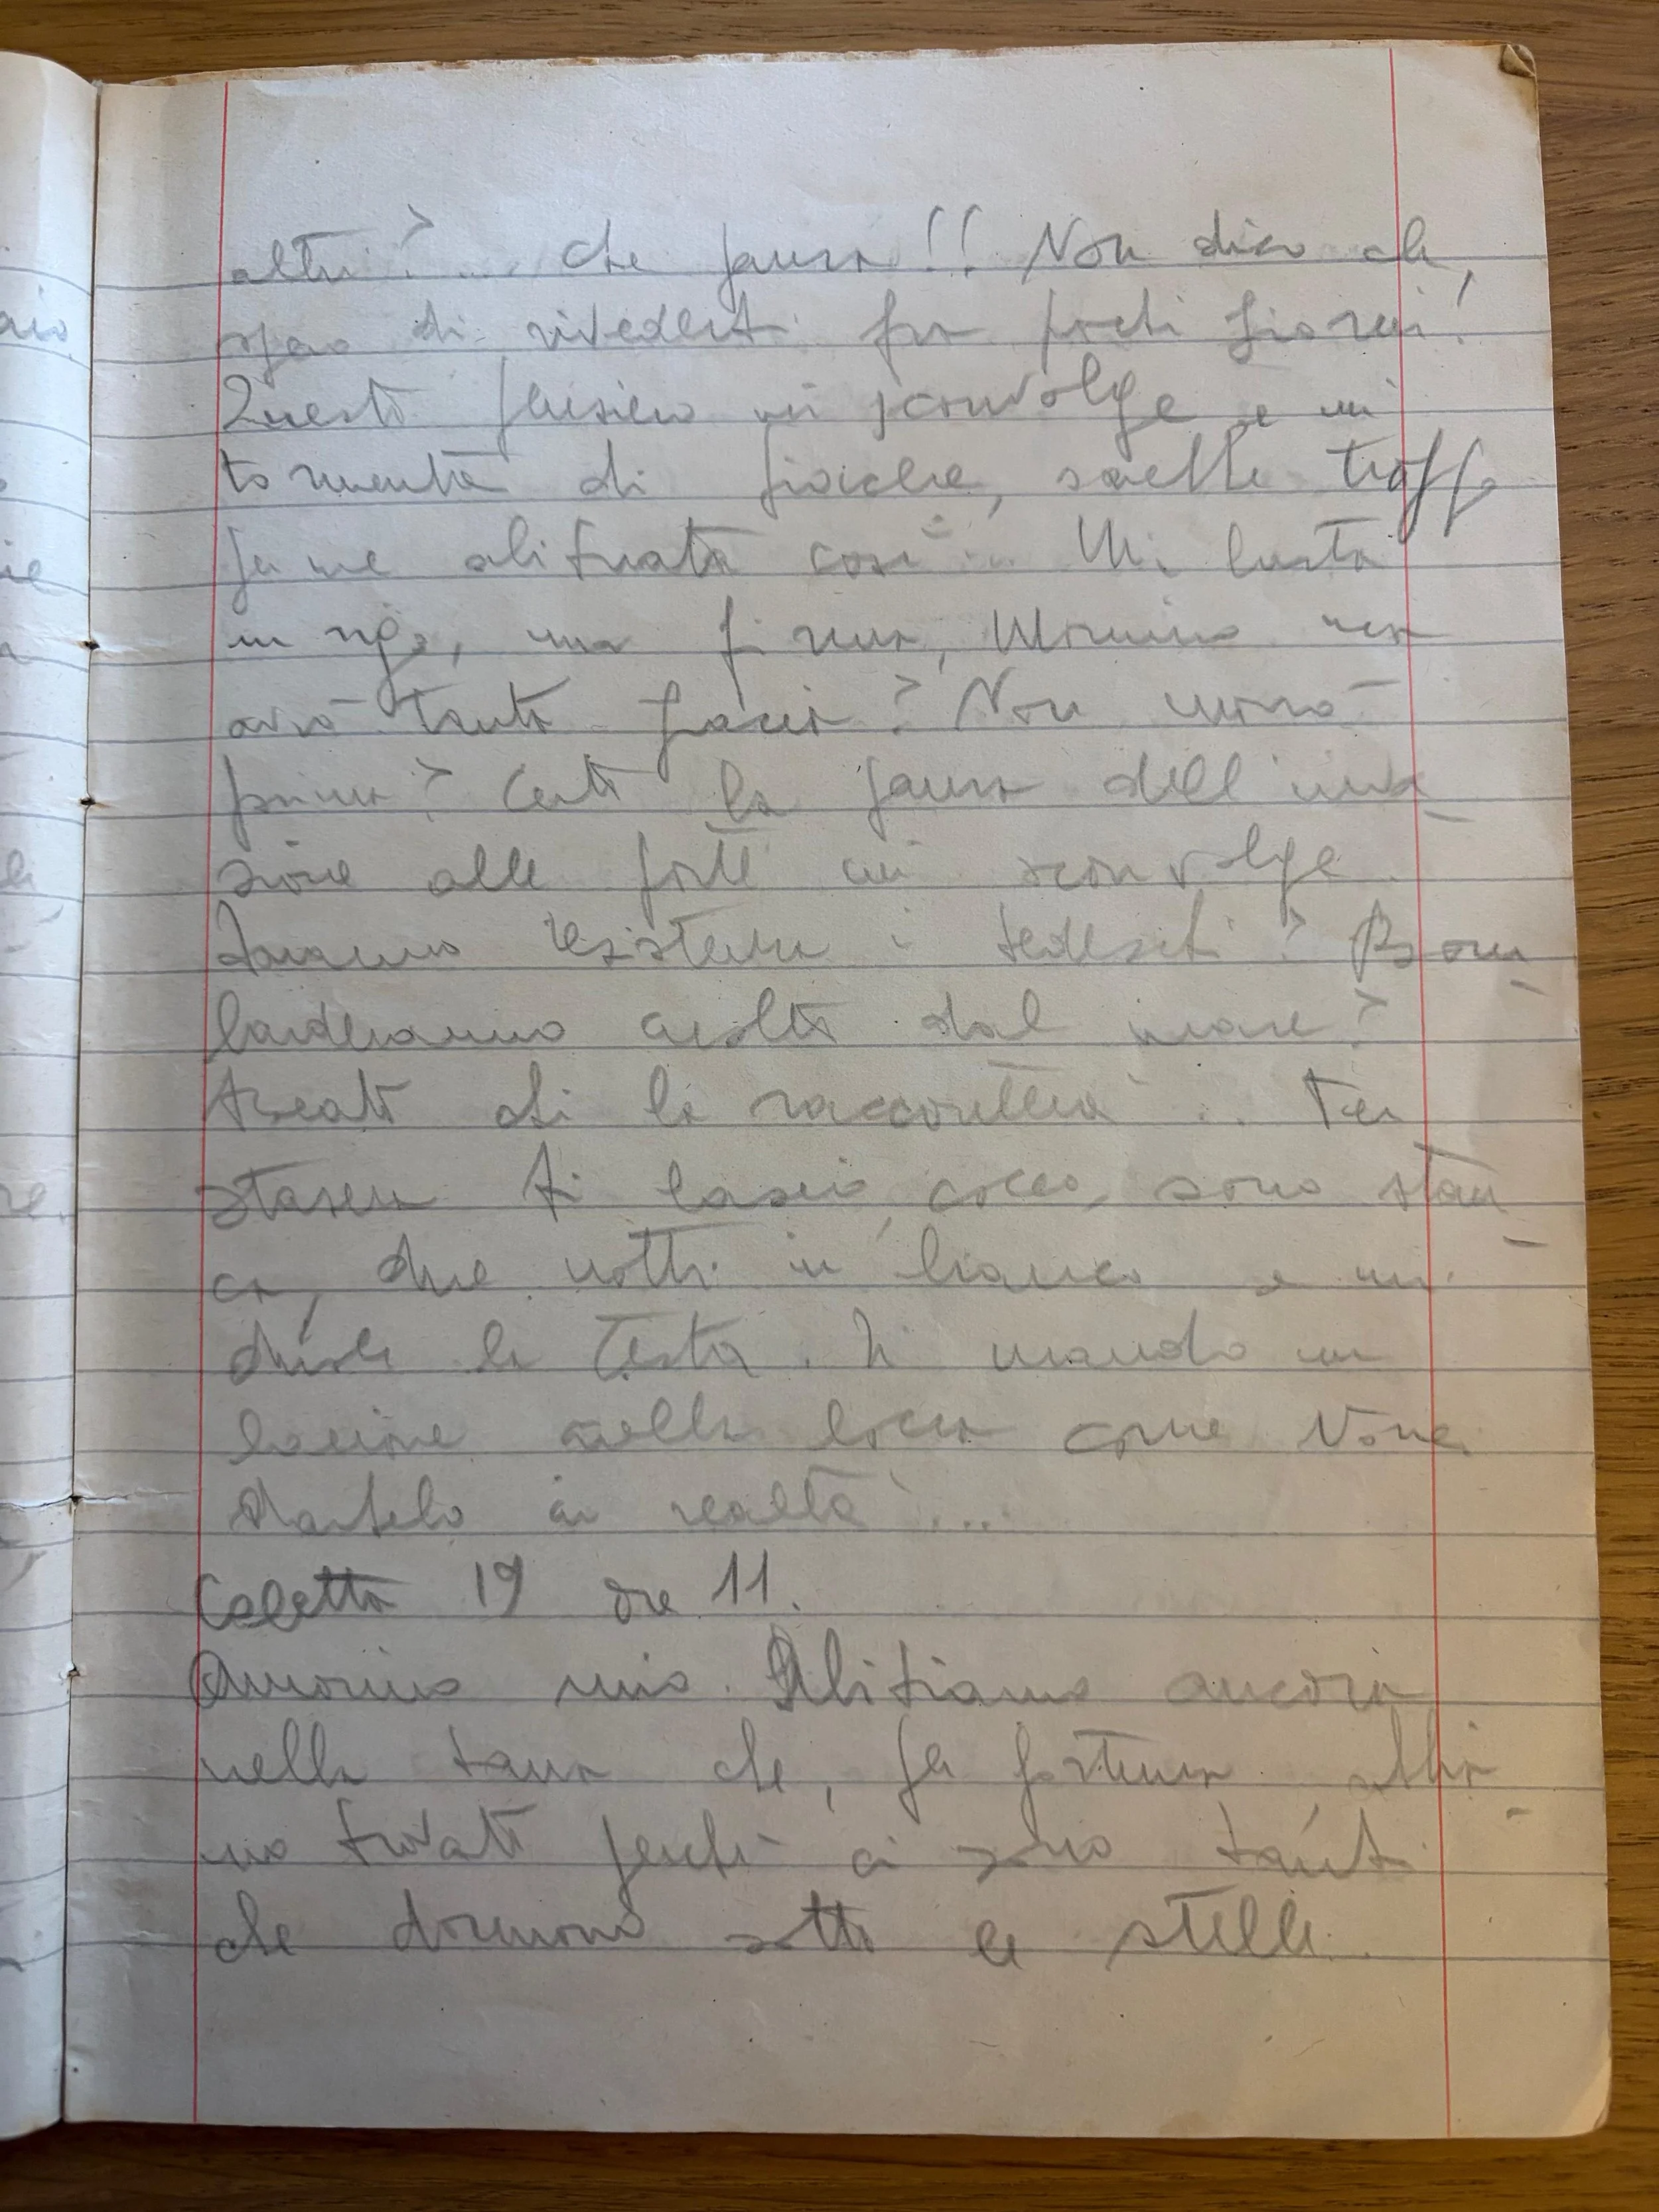 altri? ... Che paura!! Non dico che,
spero di rivederti fra pochi giorni!
Questo pensiero mi sconvolge e mi
tormenta di gioia che, sarebbe troppo
per me abituata così... Mi basta
un rigo, ma prima, Mimmo
avrò tanta gioia? Non morirò
prima? Certo la paura dell'inva
sione alle porte mi sconvolge.
Faranno resistenza i tedeschi? Bom
barderanno molto dal mare?
Beato chi lo racconterà... Per
stasera ti lascio, cocco, sono stan
ca, due notti in bianco e mi
duole la testa. Ti mando un
bacione nella bocca come vorrei
dartelo in realtà....
Caletta 19 ore 11.
Amorino mio. Abitiamo ancora
nella tana che, per fortuna abbia
mo trovato perché ci sono tanti
che dormono sotto le stelle.